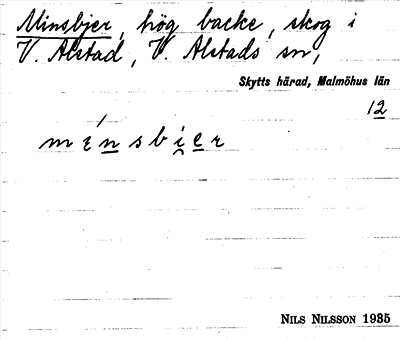 Minsbjer, hög backe, skog i
V. Alstad, V. Alstads sn,
Skytts härad, Malmöhus län
12
NILS NILSSON 1935